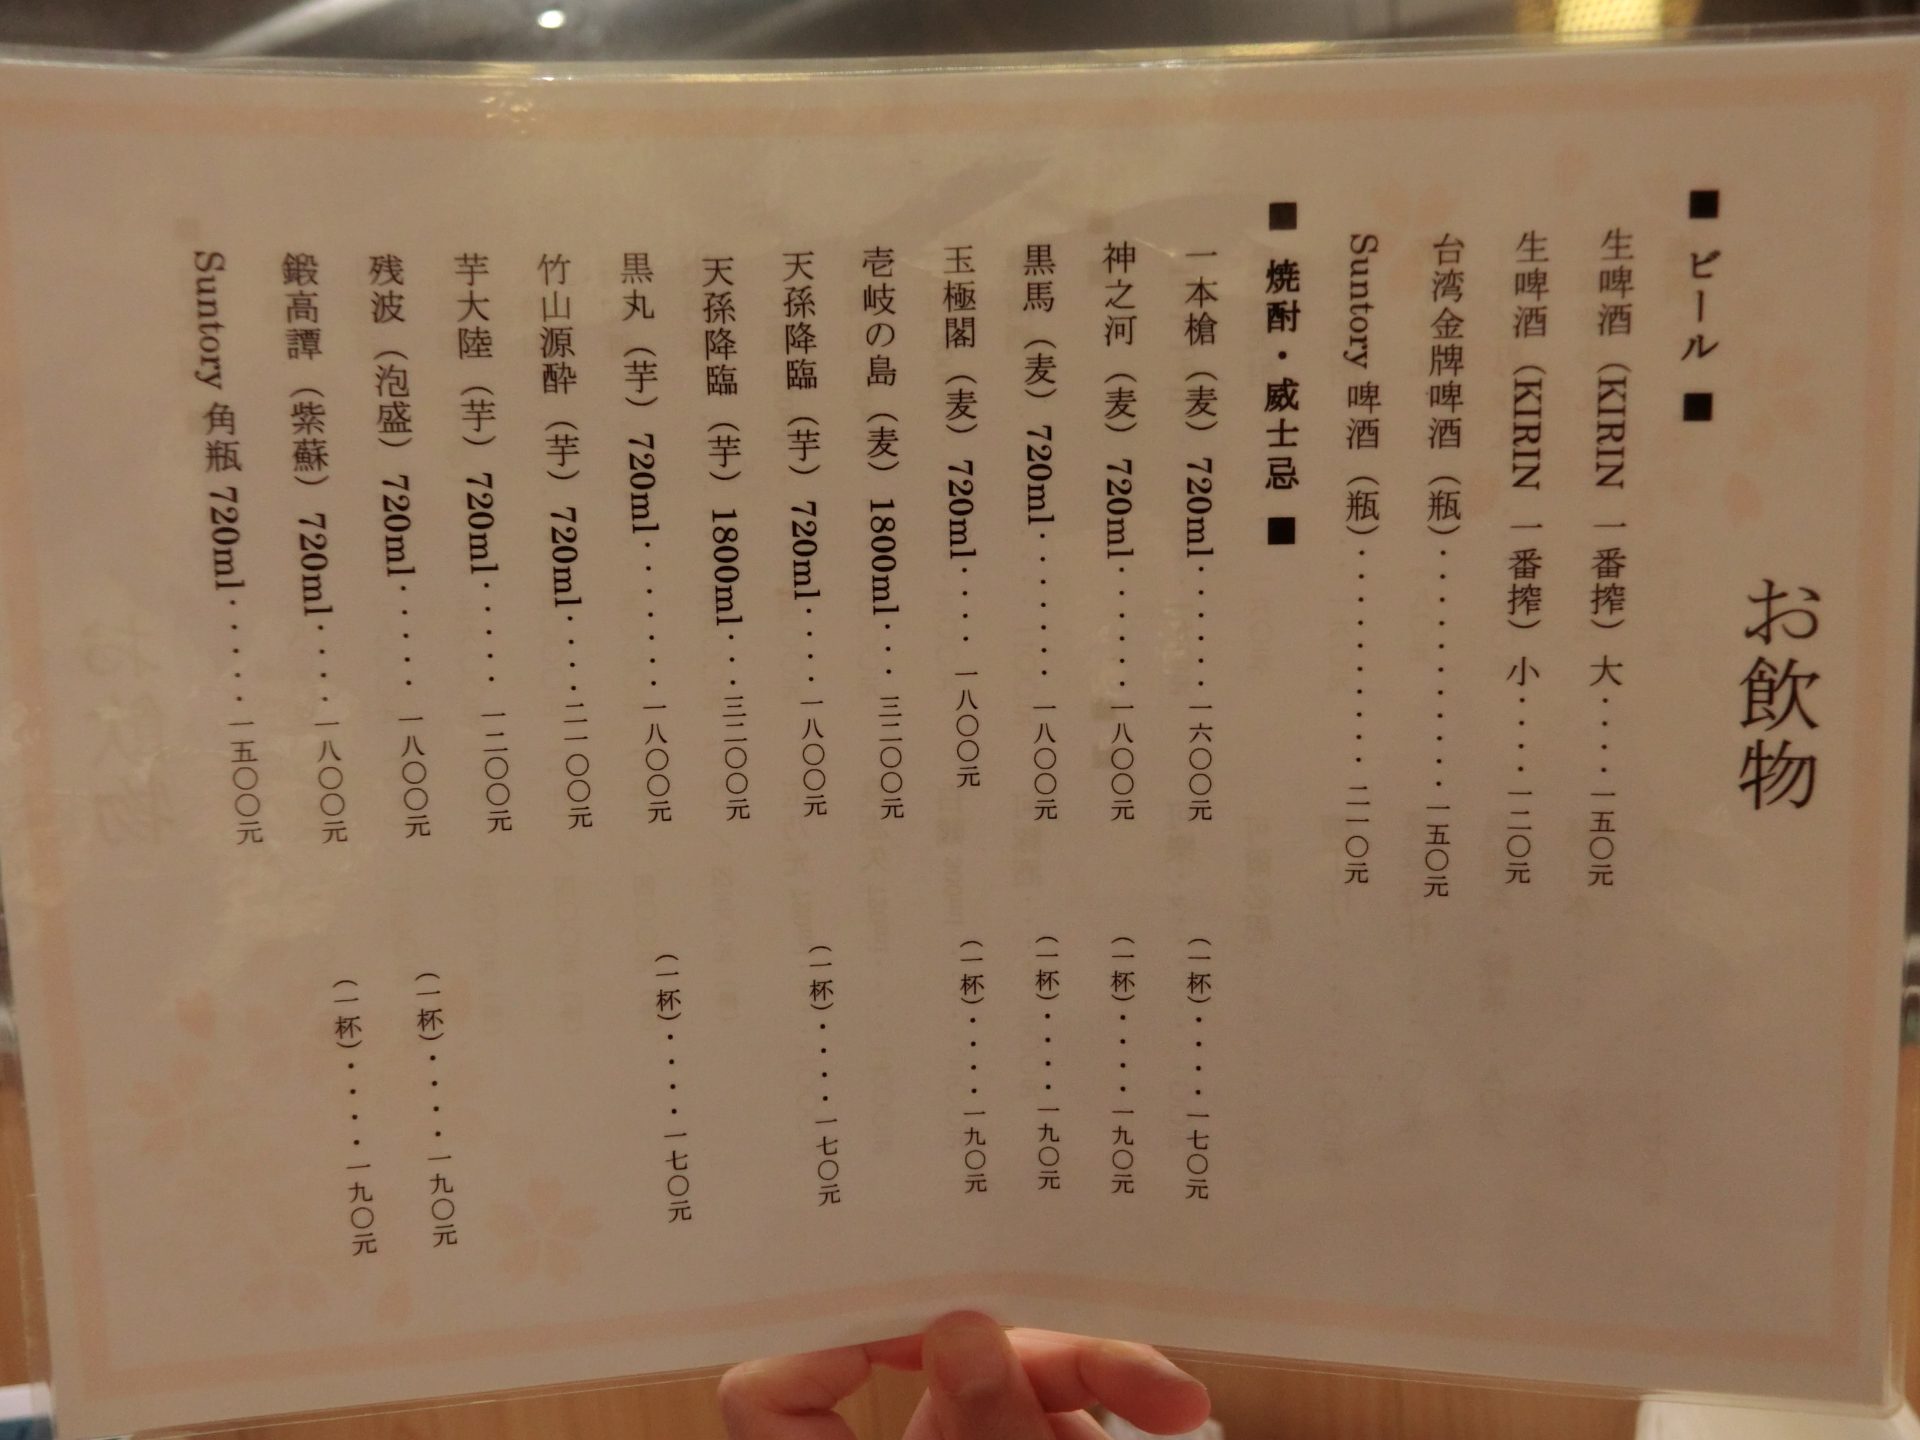 お飲物
■ ビール ■
生啤酒（KIRIN 一番搾）大・・・・一五〇元
生啤酒（KIRIN 一番搾）小・・・・一二〇元
台湾金牌啤酒（瓶）・・・・・・・・・一五〇元
Suntory 啤酒（瓶）・・・・・・・・・二一〇元
■ 焼酎・威士忌 ■
一本槍（麦）720ml・・・・・一六〇〇元 （一杯）・・・・・一七〇元
神之河（麦）720ml・・・・・一八〇〇元 （一杯）・・・・・一九〇元
黒馬（麦）720ml・・・・・・一八〇〇元 （一杯）・・・・・一九〇元
玉極閣（麦）720ml・・・・一八〇〇元 （一杯）・・・・・一九〇元
壱岐の島（麦）1800ml・・・三二〇〇元
天孫降臨（芋）720ml・・・・一八〇〇元 （一杯）・・・・・一七〇元
天孫降臨（芋）1800ml・・・三二〇〇元
黒丸（芋）720ml・・・・・・・一八〇〇元 （一杯）・・・・・一七〇元
竹山源酔（芋）720ml・・・・二一〇〇元
芋大陸（芋）720ml・・・・・一二〇〇元
残波（泡盛）720ml・・・・・一八〇〇元 （一杯）・・・・・一九〇元
鍛高譚（紫蘇）720ml・・・・一八〇〇元 （一杯）・・・・・一九〇元
Suntory 角瓶 720ml・・・・・一五〇〇元